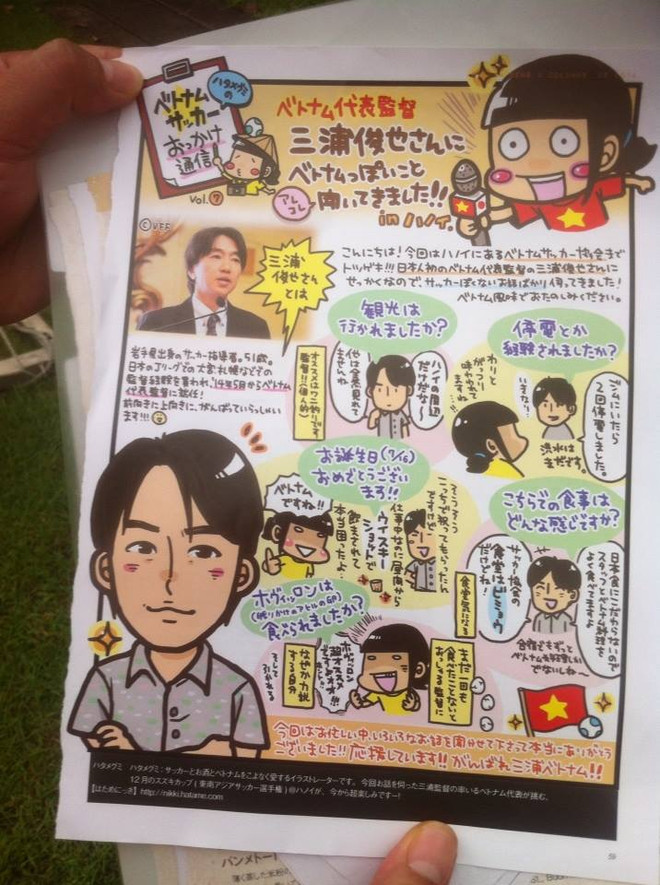 ハタメグミの
ベトナム
サッカー
おっかけ
通信
Vol.⑦
ベトナム代表監督
三浦俊也さんに
ベトナムっぽいこと
アレコレ
聞いてきました!!
in ハノイ
©VFF
三浦
俊也さん
とは
こんにちは!今回はハノイにあるベトナムサッカー協会まで
トツゲキ!!!日本人初のベトナム代表監督の三浦俊也さんに
せっかくなので、サッカーぽくないお話ばかり伺ってきました!
ベトナム風味でおたのしみください。
岩手県出身のサッカー指導者。51歳。
日本のJリーグでの大宮、札幌などでの
監督経験を買われ、'14年5月からベトナム
代表監督に就任!
前向きに上向きに、がんばっていらっしゃい
ます!!!
観光は
行かれましたか?
ハノイの周辺
だけだな〜
他は全然見れて
ませんね
オススメはワニ釣りです
監督!!(個人的)
停電とか
経験されましたか?
ジムにいたら
2回停電しました。
洪水は
まだです。
いきなり!
わりと
がっつり
味わわれて
ますね…
お誕生日(7/16)
おめでとうござい
ます!!
こっちで祝ってもらったん
ですけど
仕事中なのに昼間から
ウイスキー
ショットで
飲まされて
本当困ったよ…
ベトナム
ですね!!
こちらでの食事は
どんな感じですか?
日本食にこだわらないので
スタッフとベトナム料理を
よく食べてますよ
サッカー協会の
食堂はビミョウ
だけどね!
食堂気になる
合宿もずっと
ベトナム料理しか
でないしね〜
ホヴィッロンは
食べられましたか?
まだ一回も
食べたことないと
おっしゃる監督に
ホヴィッロン
超オススメ
ですよオオ!!!
なぜか力説
する自分
そして
引かれる
今回はお忙しい中、いろいろなお話を聞かせて下さって本当にありがとう
ございました!!応援しています!!がんばれ三浦ベトナム!!
ハタメグミ ハタメグミ:サッカーとお酒とベトナムをこよなく愛するイラストレーターです。今回お話を伺った三浦監督の率いるベトナム代表が挑む、
12月のスズキカップ(東南アジアサッカー選手権)@ハノイが、今から超楽しみですー!
【はためにっき】http://nikki.hatame.com
59